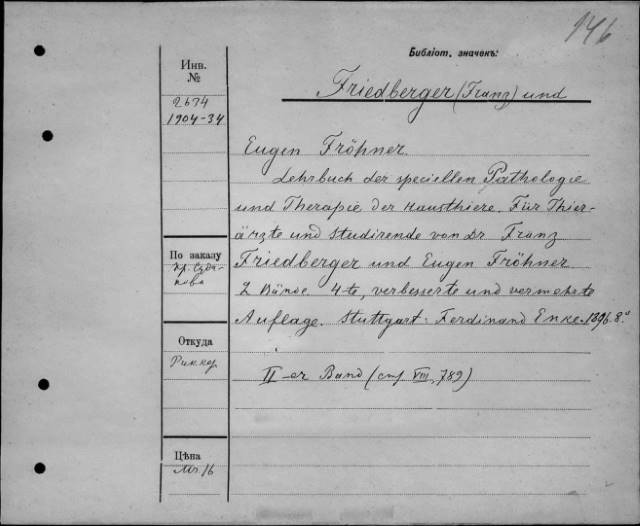 146
Библіот. значокъ:
Инв.
№
2674
1904-34
Friedberger (Franz) und
Eugen Fröhner.
Lehrbuch der speciellen Pathologie
und Therapie der Hausthiere. Für Thier-
ärzte und Studirende von Dr Franz
Friedberger und Eugen Fröhner
2 Bände. 4-te, verbesserte und vermehrte
Auflage. Stuttgart: Ferdinand Enke. 1896. 8°
II-er Band (стр VIII, 789)
По заказу
Откуда
Риккер
Цѣна
Mr. 16